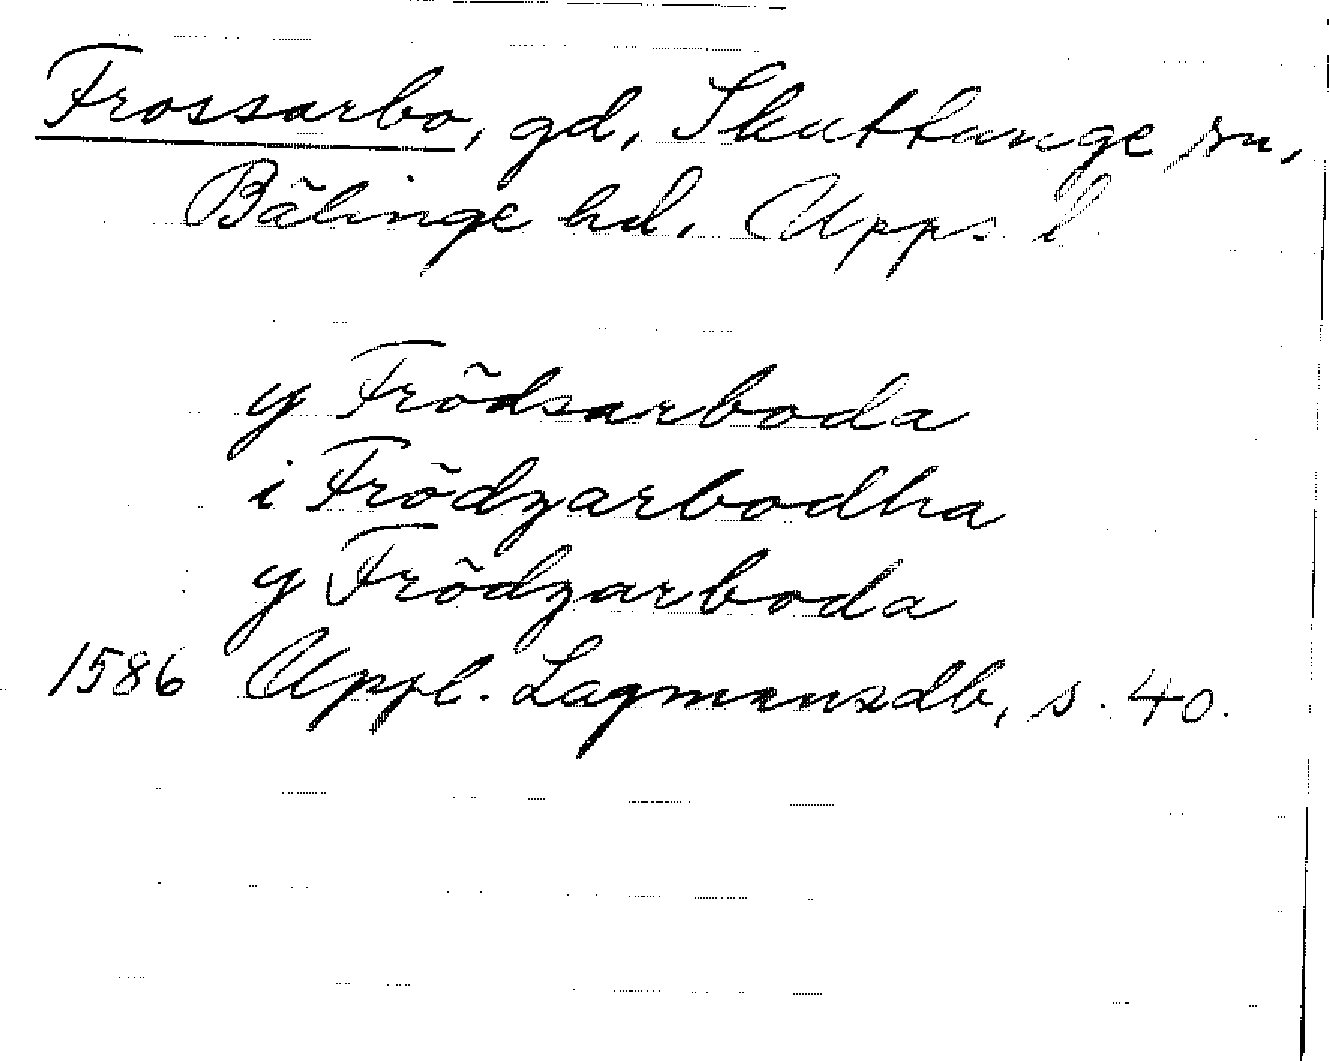 Frossarbo, gd, Skuttunge sn,
Bälinge hd. Upps. l
y Frödsarboda
i Frödzarbodha
y Frödzarboda
1586 Uppl. Lagmansdb, s. 40.